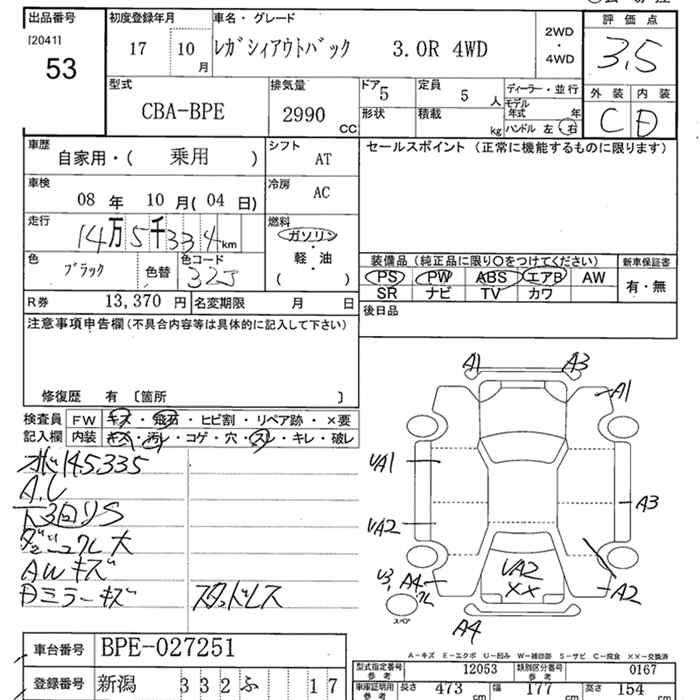 出品番号
[2041]
53
初度登録年月
17 10月
車名・グレード
レガシィアウトバック 3.0R 4WD
2WD
・
4WD
評価点
3.5
型式
CBA-BPE
排気量
2990 CC
ドア 5
形状
定員 5 人
積載 kg
ディーラー・並行
モデル年式 年
ハンドル 左 右
外装 内装
C D
車歴
自家用・( 乗用 )
シフト
AT
車検
08 年 10 月(04 日)
冷房
AC
走行
14万5千334km
燃料
ガソリン
・
軽・油
( )
色
ブラック
色替
色コード
32J
R券 13,370 円
名変期限 月 日
セールスポイント (正常に機能するものに限ります)
装備品 (純正品に限り〇をつけてください)
新車保証書
PS PW ABS エアB AW
SR ナビ TV カワ
有・無
後日品
注意事項申告欄(不具合内容等は具体的に記入して下さい)
修復歴 有 〔箇所 〕
検査員
記入欄
FW キズ・飛石・ヒビ割・リペア跡・×要
内装 キズ・汚レ・コゲ・穴・スレ・キレ・破レ
145335
下3回リS
大
AWキズ
ミラーキズ
スタッドレス
A1
A3
A1
UA1
A3
UA2
UA2
××
U3, A4
A2
A4
スペア
A-キズ E-エクボ U-凹み W-補修跡 S-サビ C-腐食 ××-交換済
車台番号 BPE-027251
登録番号 新潟 332 ふ 17
型式指定番号
参考
12053
類別区分番号
参考
0167
車庫証明用
参考
長さ 473 cm
幅 177 cm
高さ 154 cm